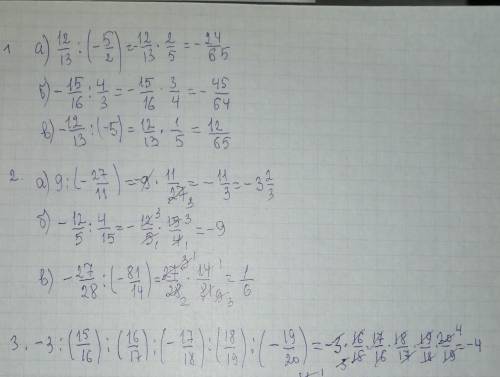 1 а) 12/13 : (-5/2) = -12/13 · 2/5 = -24/65
б) -15/16 : 4/3 = -15/16 · 3/4 = -45/64
в) -12/13 : (-5) = 12/13 · 1/5 = 12/65
2. а) 9 : (-27/11) = -9 · 11/27 3 = -11/3 = -3 2/3
б) -12/5 : 4/15 = -12 3/5 1 · 15 3/4 1 = -9
в) -27/28 : (-81/14) = 27 3/28 2 · 14 1/81 9 3 = 1/6
3. -3 : (15/16) : (16/17) : (-17/18) : (18/19) : (-19/20) = -3 · 16/15 5 · 17/16 · 18/17 · 19/18 · 20 4/19 = -4